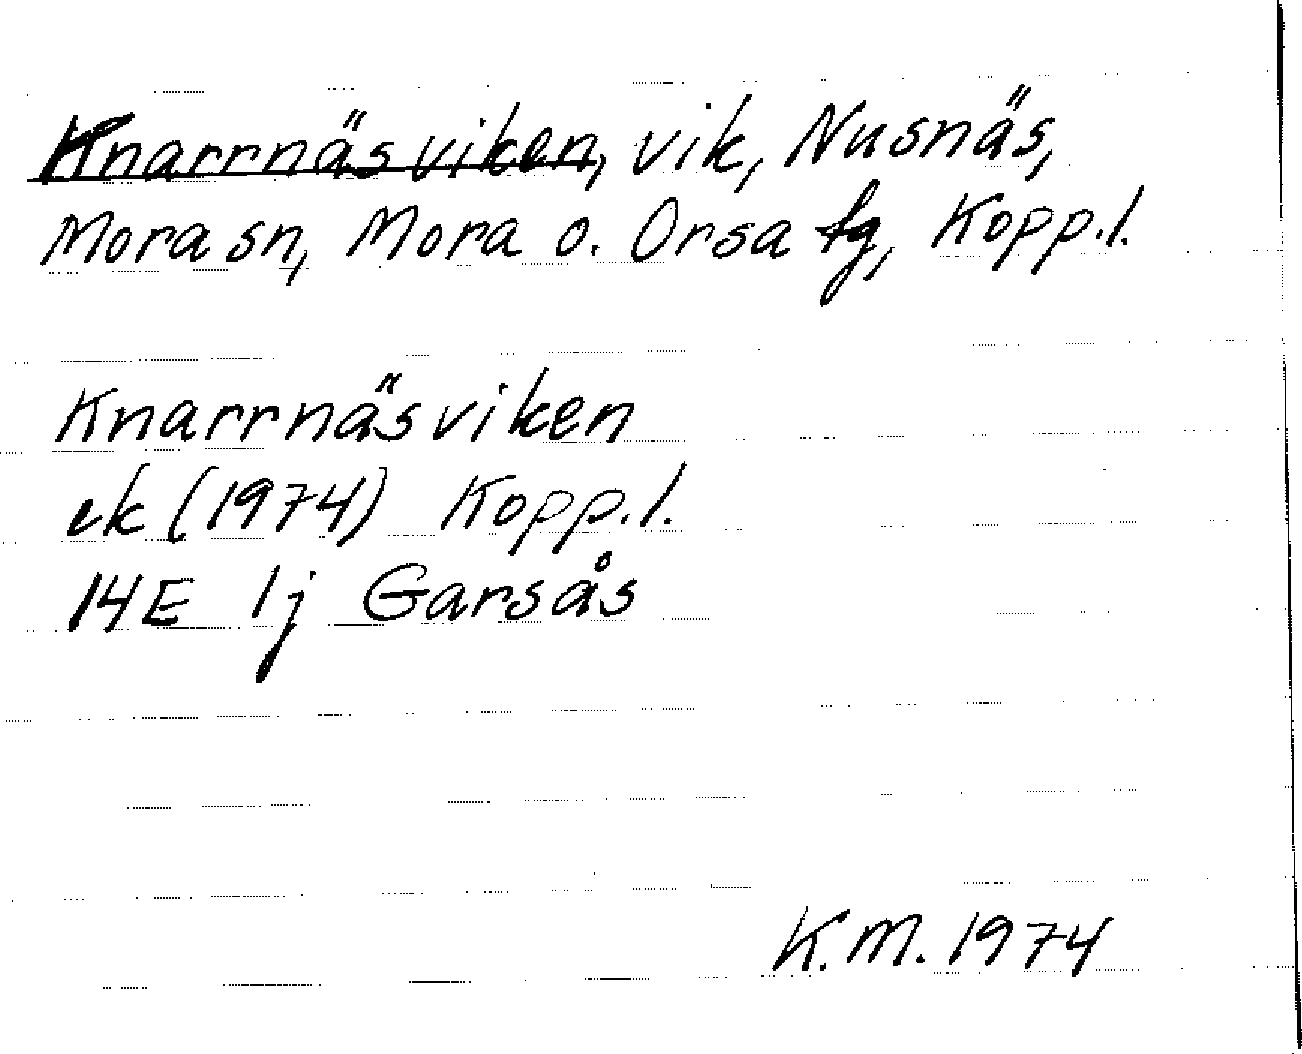 Knarrnäsviken, vik, Nusnäs,
Mora sn, Mora o. Orsa fg, Kopp.l.
Knarrnäsviken
ek (1974) Kopp.l.
14E 1j Garsås
K.M. 1974